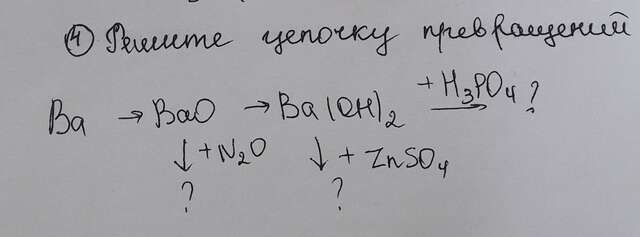 ④ Решите цепочку превращений
Ba → BaO → Ba(OH)₂ + H₃PO₄ → ?
↓ + N₂O ↓ + ZnSO₄
? ?